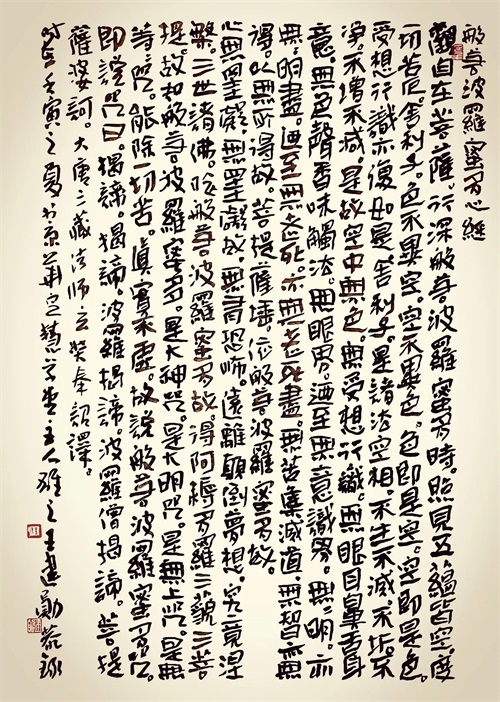 般若波羅蜜多心經
觀自在菩薩。行深般若波羅蜜多時。照見五蘊皆空。度
一切苦厄。舍利子。色不異空。空不異色。色即是空。空即是色。
受想行識亦復如是。舍利子。是諸法空相。不生不滅。不垢不
淨。不增不減。是故空中無色。無受想行識。無眼耳鼻舌身
意。無色聲香味觸法。無眼界。迺至無意識界。無無明。亦
無無明盡。迺至無老死。亦無老死盡。無苦集滅道。無智亦無
得。以無所得故。菩提薩埵。依般若波羅蜜多故。
心無罣礙。無罣礙故。無有恐怖。遠離顛倒夢想。究竟涅
槃。三世諸佛。依般若波羅蜜多故。得阿耨多羅三藐三菩
提。故知般若波羅蜜多。是大神咒。是大明咒。是無上咒。是無
等等咒。能除一切苦。真實不虛。故說般若波羅蜜多咒。
即說咒曰。揭諦。揭諦。波羅揭諦。波羅僧揭諦。菩提
薩婆訶。大唐三藏法師玄奘奉詔譯。
時在壬寅之夏於京華 主人雅之王建勛恭錄